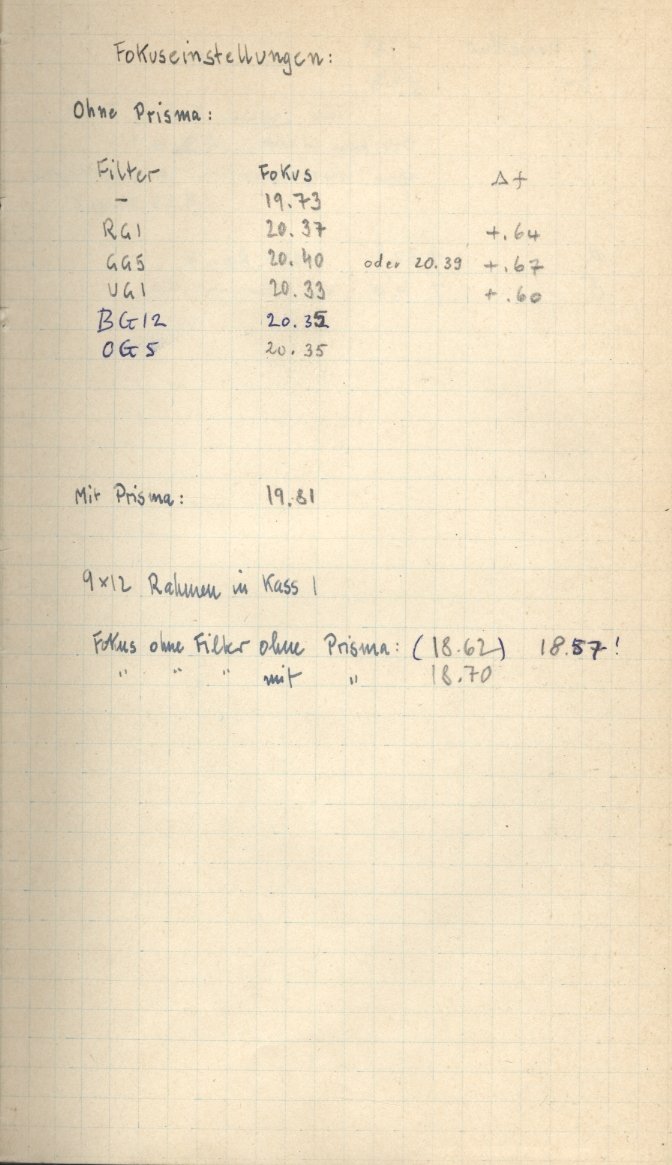 Fokuseinstellungen:
Ohne Prisma:
Filter Fokus Δf
- 19.73
RG1 20.37 +.64
GG5 20.40 oder 20.39 +.67
UG1 20.33 +.60
BG12 20.35
OG5 20.35
Mit Prisma: 19.81
9×12 Rahmen in Kass 1
Fokus ohne Filter ohne Prisma: (18.62) 18.57!
" " " mit " 18.70